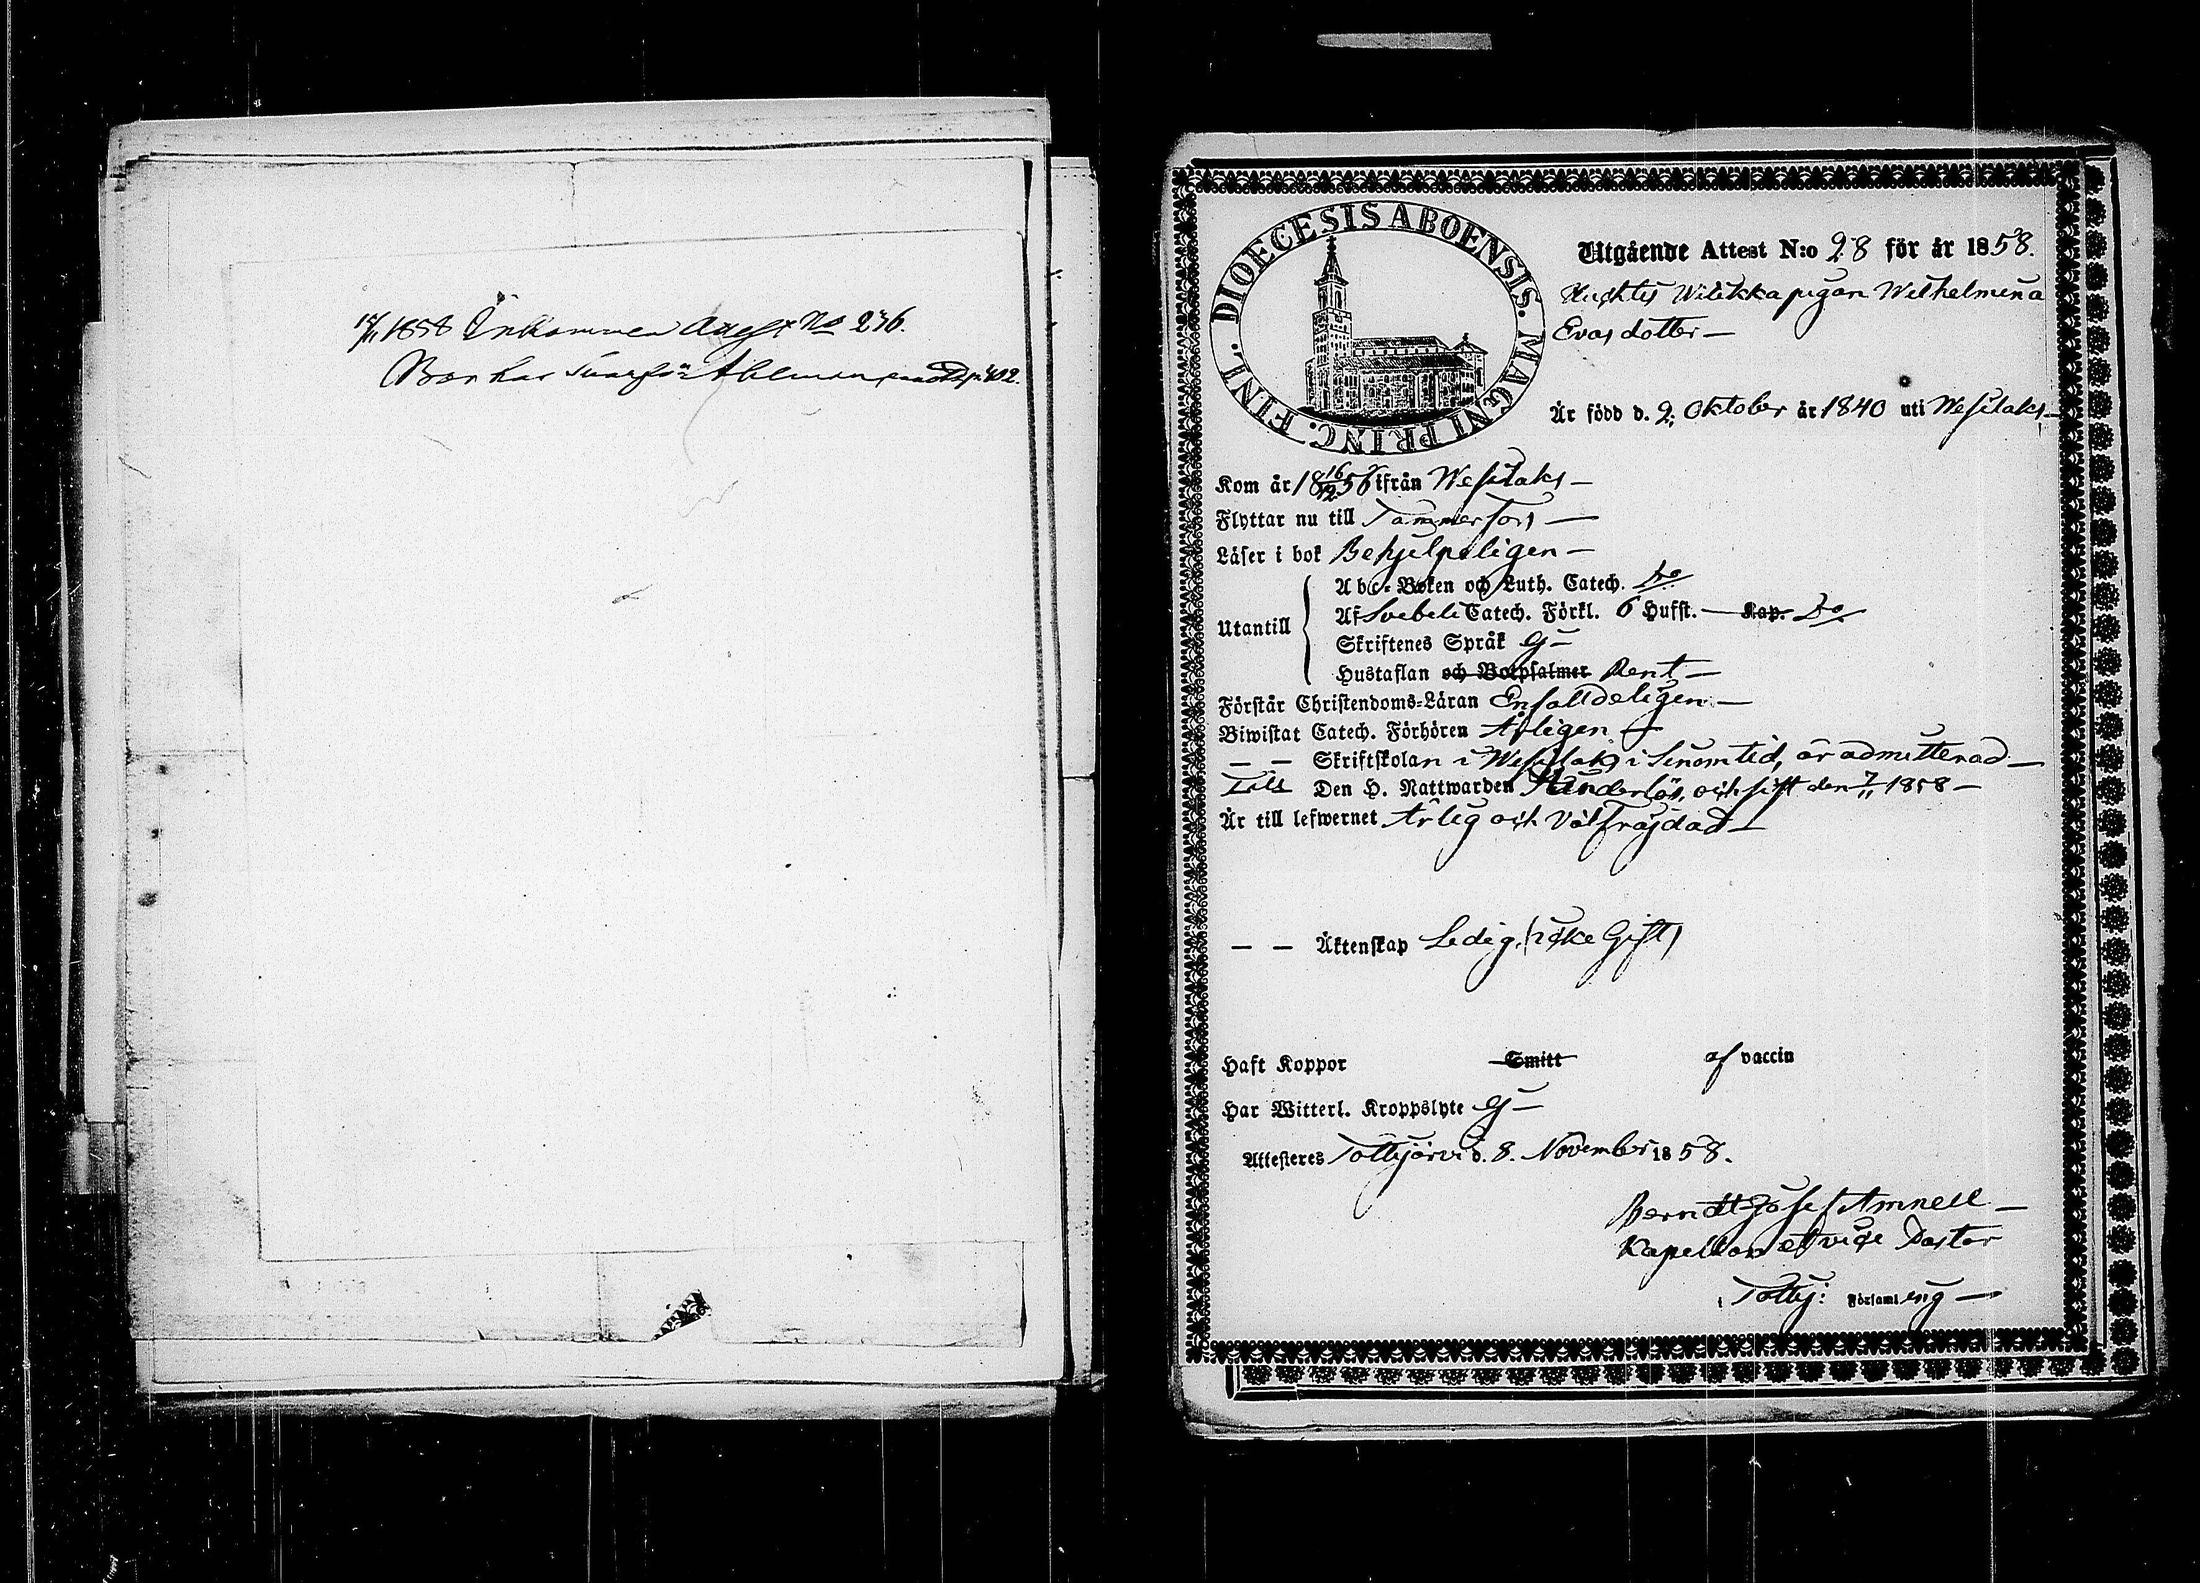 1858 Inkommen Attest No 236.
DIOECESIS ABOENSIS. MAGNI PRINC. FINL.
Utgående Attest N:o 28 för år 1858.
Wilikka pigan Wilhelmina
Evasdotter —
Är född d. 2. Oktober år 1840 uti Wesilaks —
Kom år 18 16/12 56 ifrån Wesilaks —
Flyttar nu till Tammerfors —
Läser i bok Behjelpeligen —
Utantill
Abc-Boken och Luth. Catech. Do
Af Svebeli Catech. Förkl. 6 Hufst. — Kap. Do
Skriftenes Språk Ej —
Hustaflan och Botpsalmer Rent —
Förstår Christendoms-Läran Enfalldeligen —
Biwistat Catech. Förhören Årligen —
— — Skriftskolan i Wesilaks i sinom tid, är admitterad —
Till Den H. Nattwarden Hinderlös, och sist den 7/11 1858 —
Är till lefwernet Ärlig och Välfrejdad —
— — Äktenskap Ledig, (icke Gift)
Haft Koppor Smitt af vaccin
Har Witterl. Kroppslyte Ej —
Attesteres Tottijärvi d. 8. November 1858.
Berndt Josef Amnell —
Kapellan et vice Pastor
i Tottij: Församl ing —